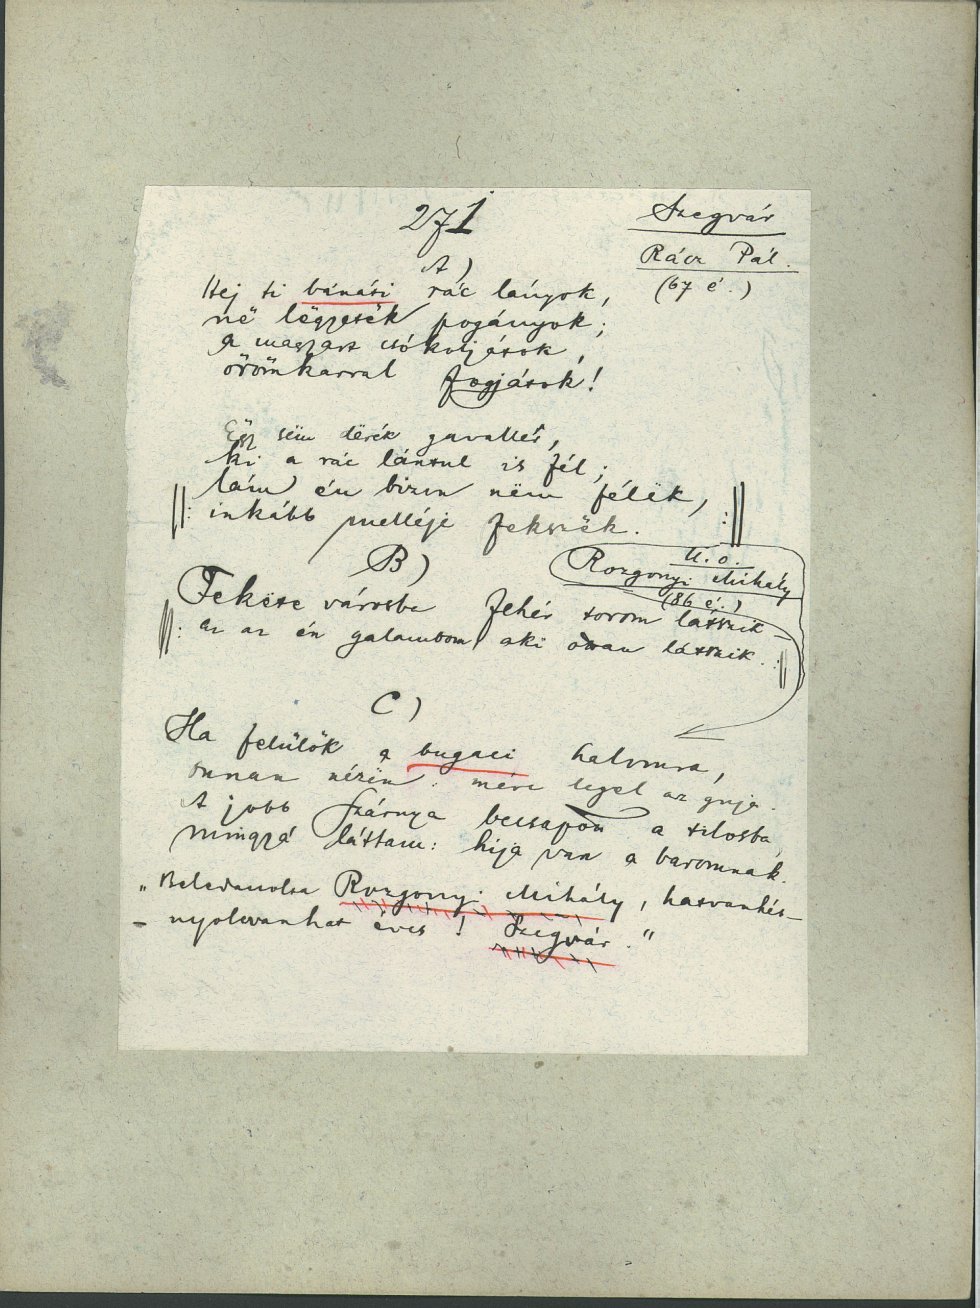 271
Szegvár
Rácz Pál.
(67 é.)
A)
Hej ti bánáti rác lányok,
në lëgyetëk pogányok;
a magyart csókoljátok,
örömkarral fogjátok!
Ëgy sëm dërék gavallér,
ki a rác lántul is fél;
lám én bizon nëm félëk,
inkább melléje fekszëk.
U. o.
Rozgonyi Mihály
(86 é.)
B)
Fekete városba fehér torom látszik –
az az én galambom, aki owan látszik.
C)
Ha felülök a bugaci halomra,
onnan nézëm: mére legel az guja.
A jobb szárnya becsapon a tilosba,
mingyá láttam: hija van a baromnak.
„Beledanolta Rozgonyi Mihály, hatvanhét-
- nyolcvanhat éves! Szegvár."